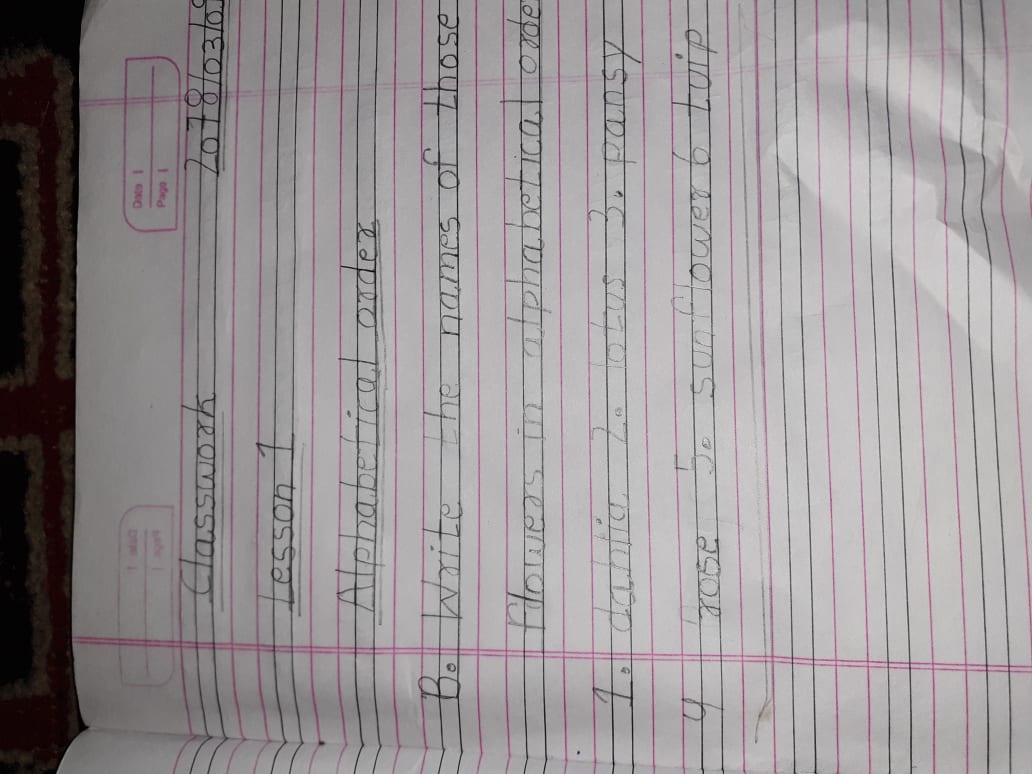 Date |
Page |
Classwork
Lesson 1
Alphabetical order
B. Write the names of those
flowers in alphabetical orde
1. dahlia 2. lotus 3. pansy
4 rose 5. sunflower 6 tuip